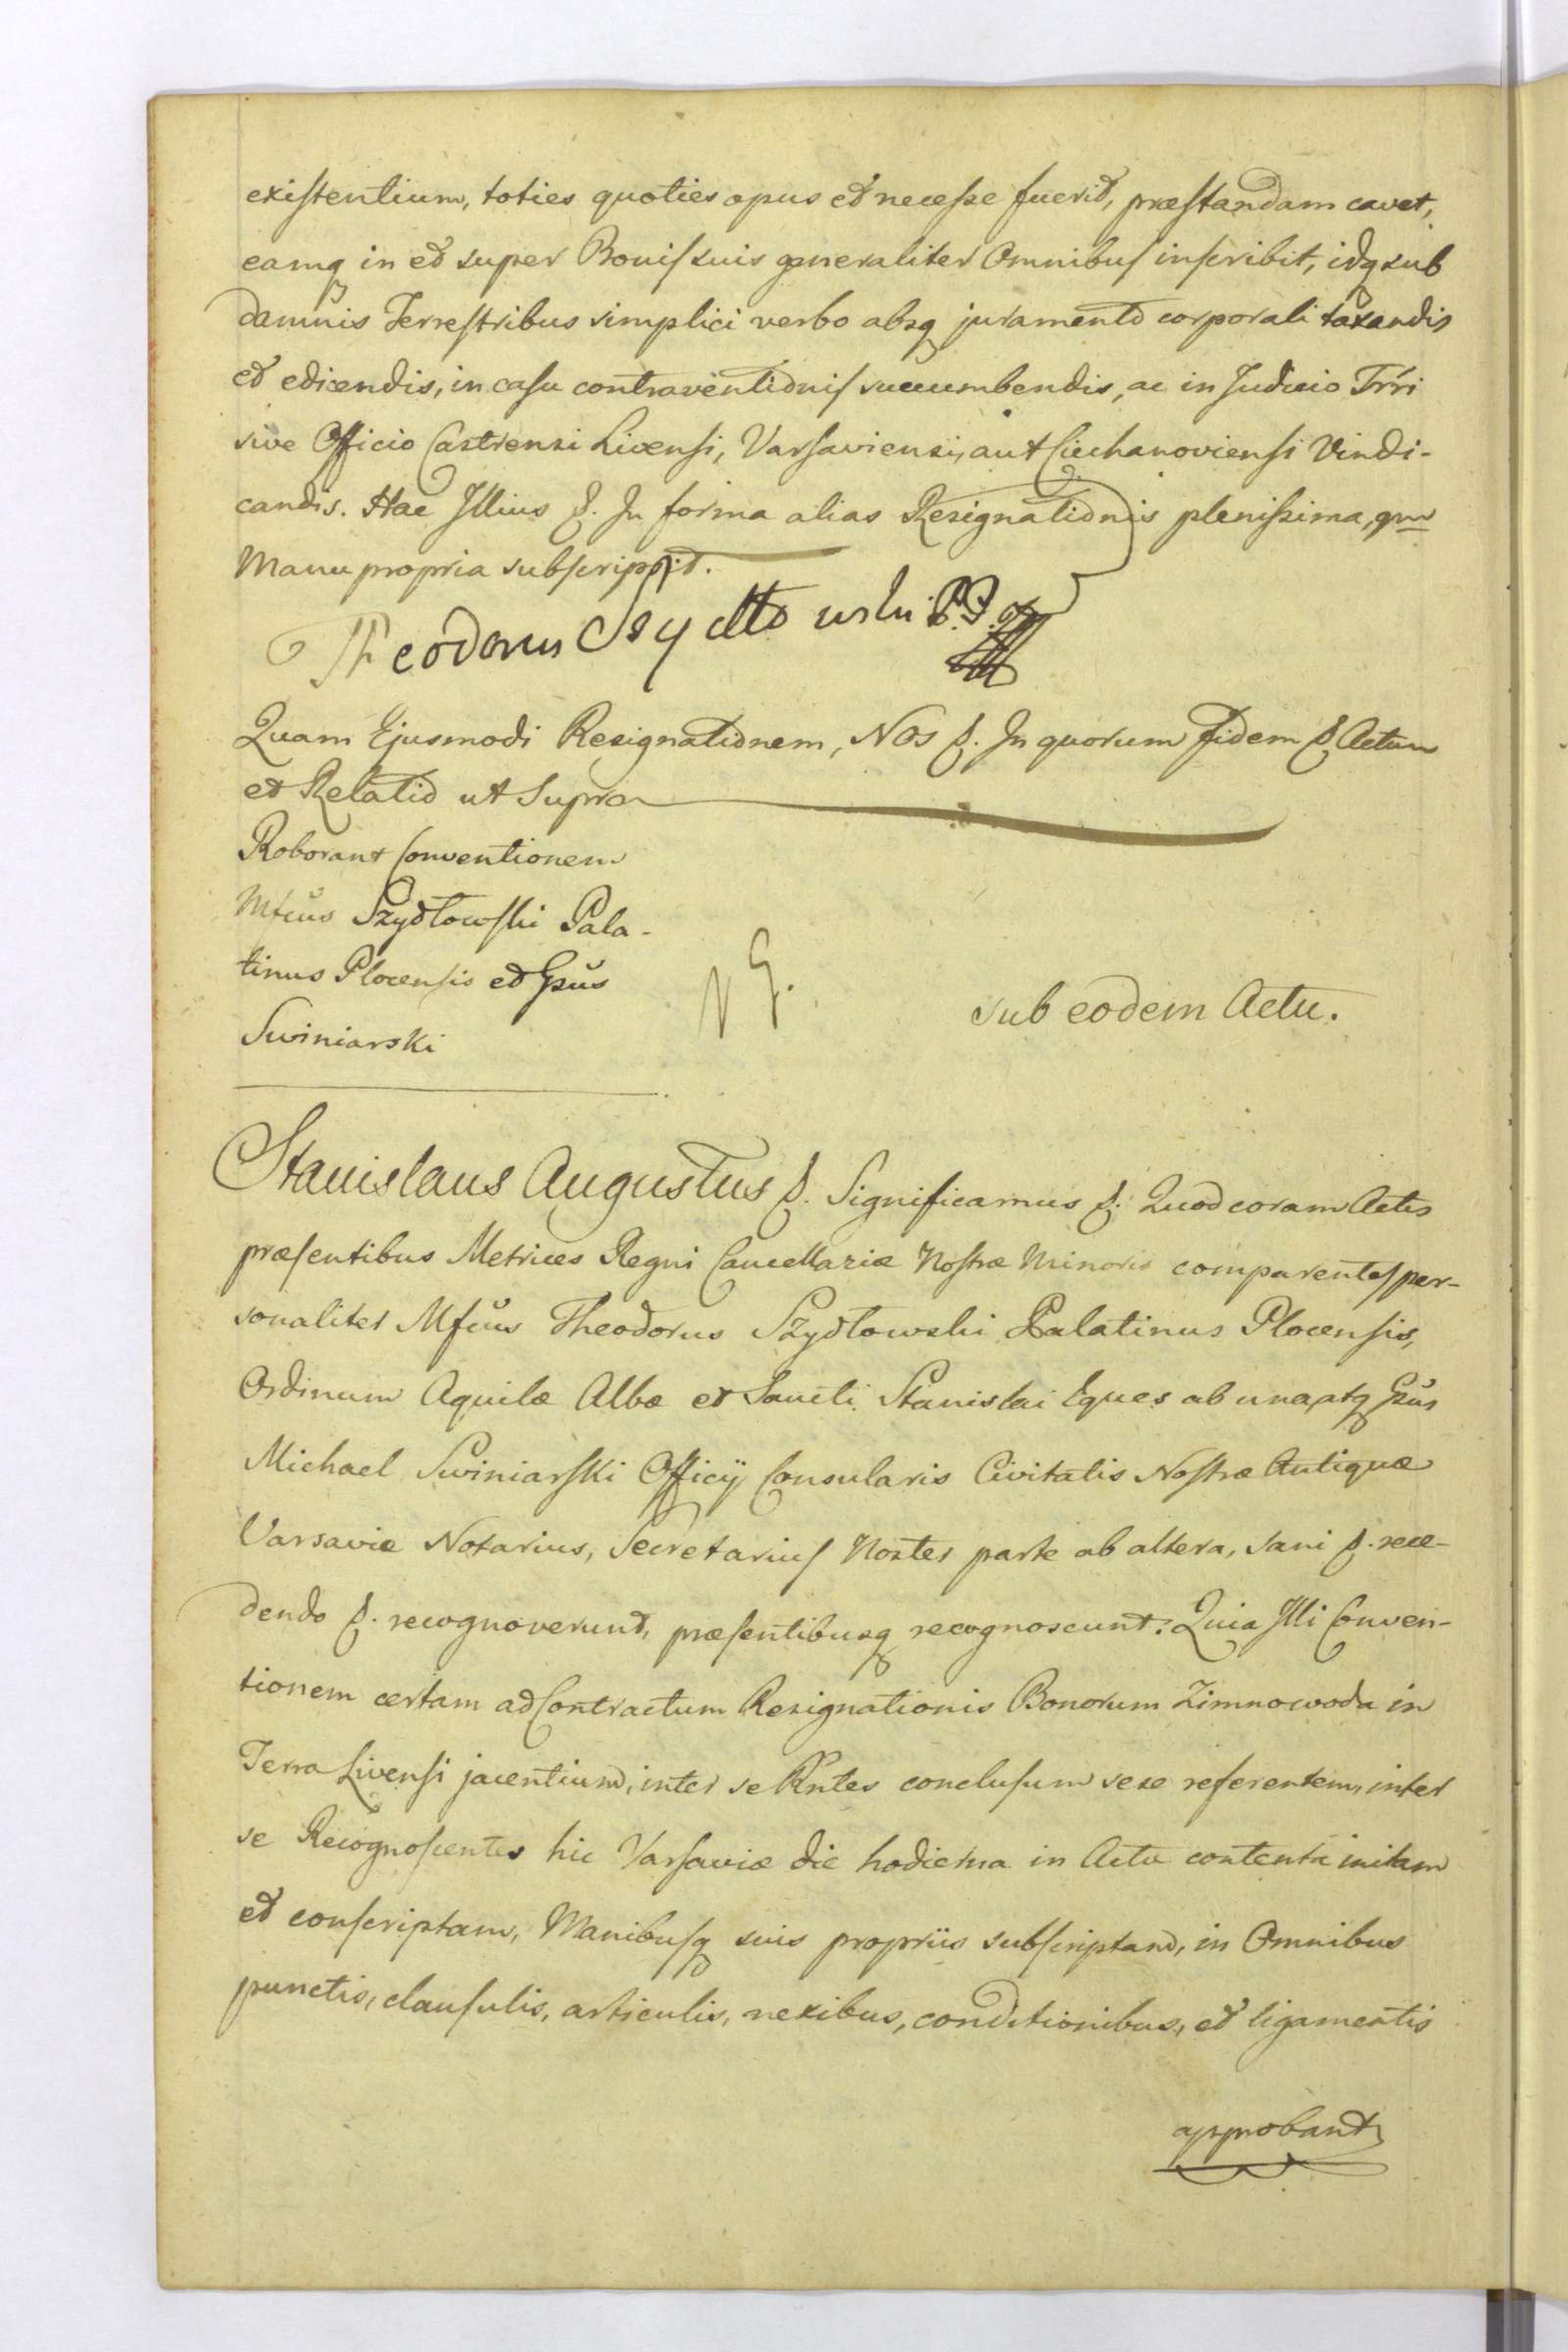 existentium, toties quoties opus et necesse fuerit, præstandam cavet,
eamq in et super Bonis suis generaliter Omnibus inscribit, idq sub
damnis Terrestribus simplici verbo absq juramento corporali taxandis
et edicendis, in casu contraventionis succumbendis, ac in Judicio Trri
sive Officio Castrensi Livensi, Varsaviensi, aut Ciechanoviensi Vindi-
candis. Hac Illius &. In forma alias Resignationis plenissima, qm
Manu propria subscripsit.
Theodorus Szydłowski
Quam Ejusmodi Resignationem, Nos &. In quorum fidem & Actum
et Relatio ut Supra
Roborant Conventionem
Mfcus Szydłowski Pala-
tinus Plocensis et Gsus
Swiniarski
sub eodem Actu.
Stanislaus Augustus &. Significamus &. Quod coram Actis
præsentibus Metrices Regni Cancellariæ Nostræ Minoris comparentes per-
sonaliter Mfcus Theodorus Szydłowski Palatinus Plocensis,
Ordinum Aquilæ Albæ et Sancti Stanislai Eques ab una, atq Gsus
Michael Swiniarski Officij Consularis Civitatis Nostræ Antiquæ
Varsaviæ Notarius, Secretarius Noster parte ab altera, sani &. rece-
dendo &. recognoverunt, præsentibusq recognoscunt: Quia Illi Conven-
tionem certam ad Contractum Resignationis Bonorum Zimnowoda in
Terra Livensi jacentium, inter se Rntes conclusum sese referentem, inter
se Recognoscentes hic Varsaviæ die hodierna in Actu contenta initam
et conscriptam, Manibusq suis propriis subscriptam, in Omnibus
punctis, clausulis, articulis, nexibus, conditionibus, et ligamentis
approbant